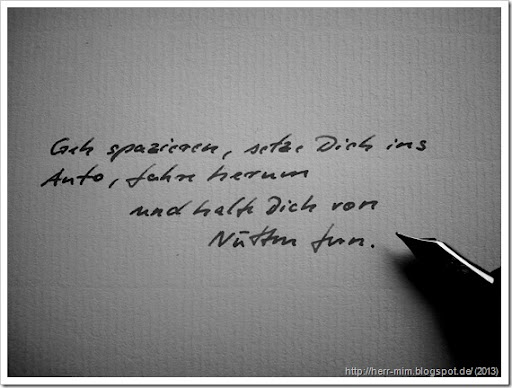 Geh spazieren, setze Dich ins
Auto, fahre herum
und halte Dich von
Nutten fern.
http://herr-mim.blogspot.de/(2013)